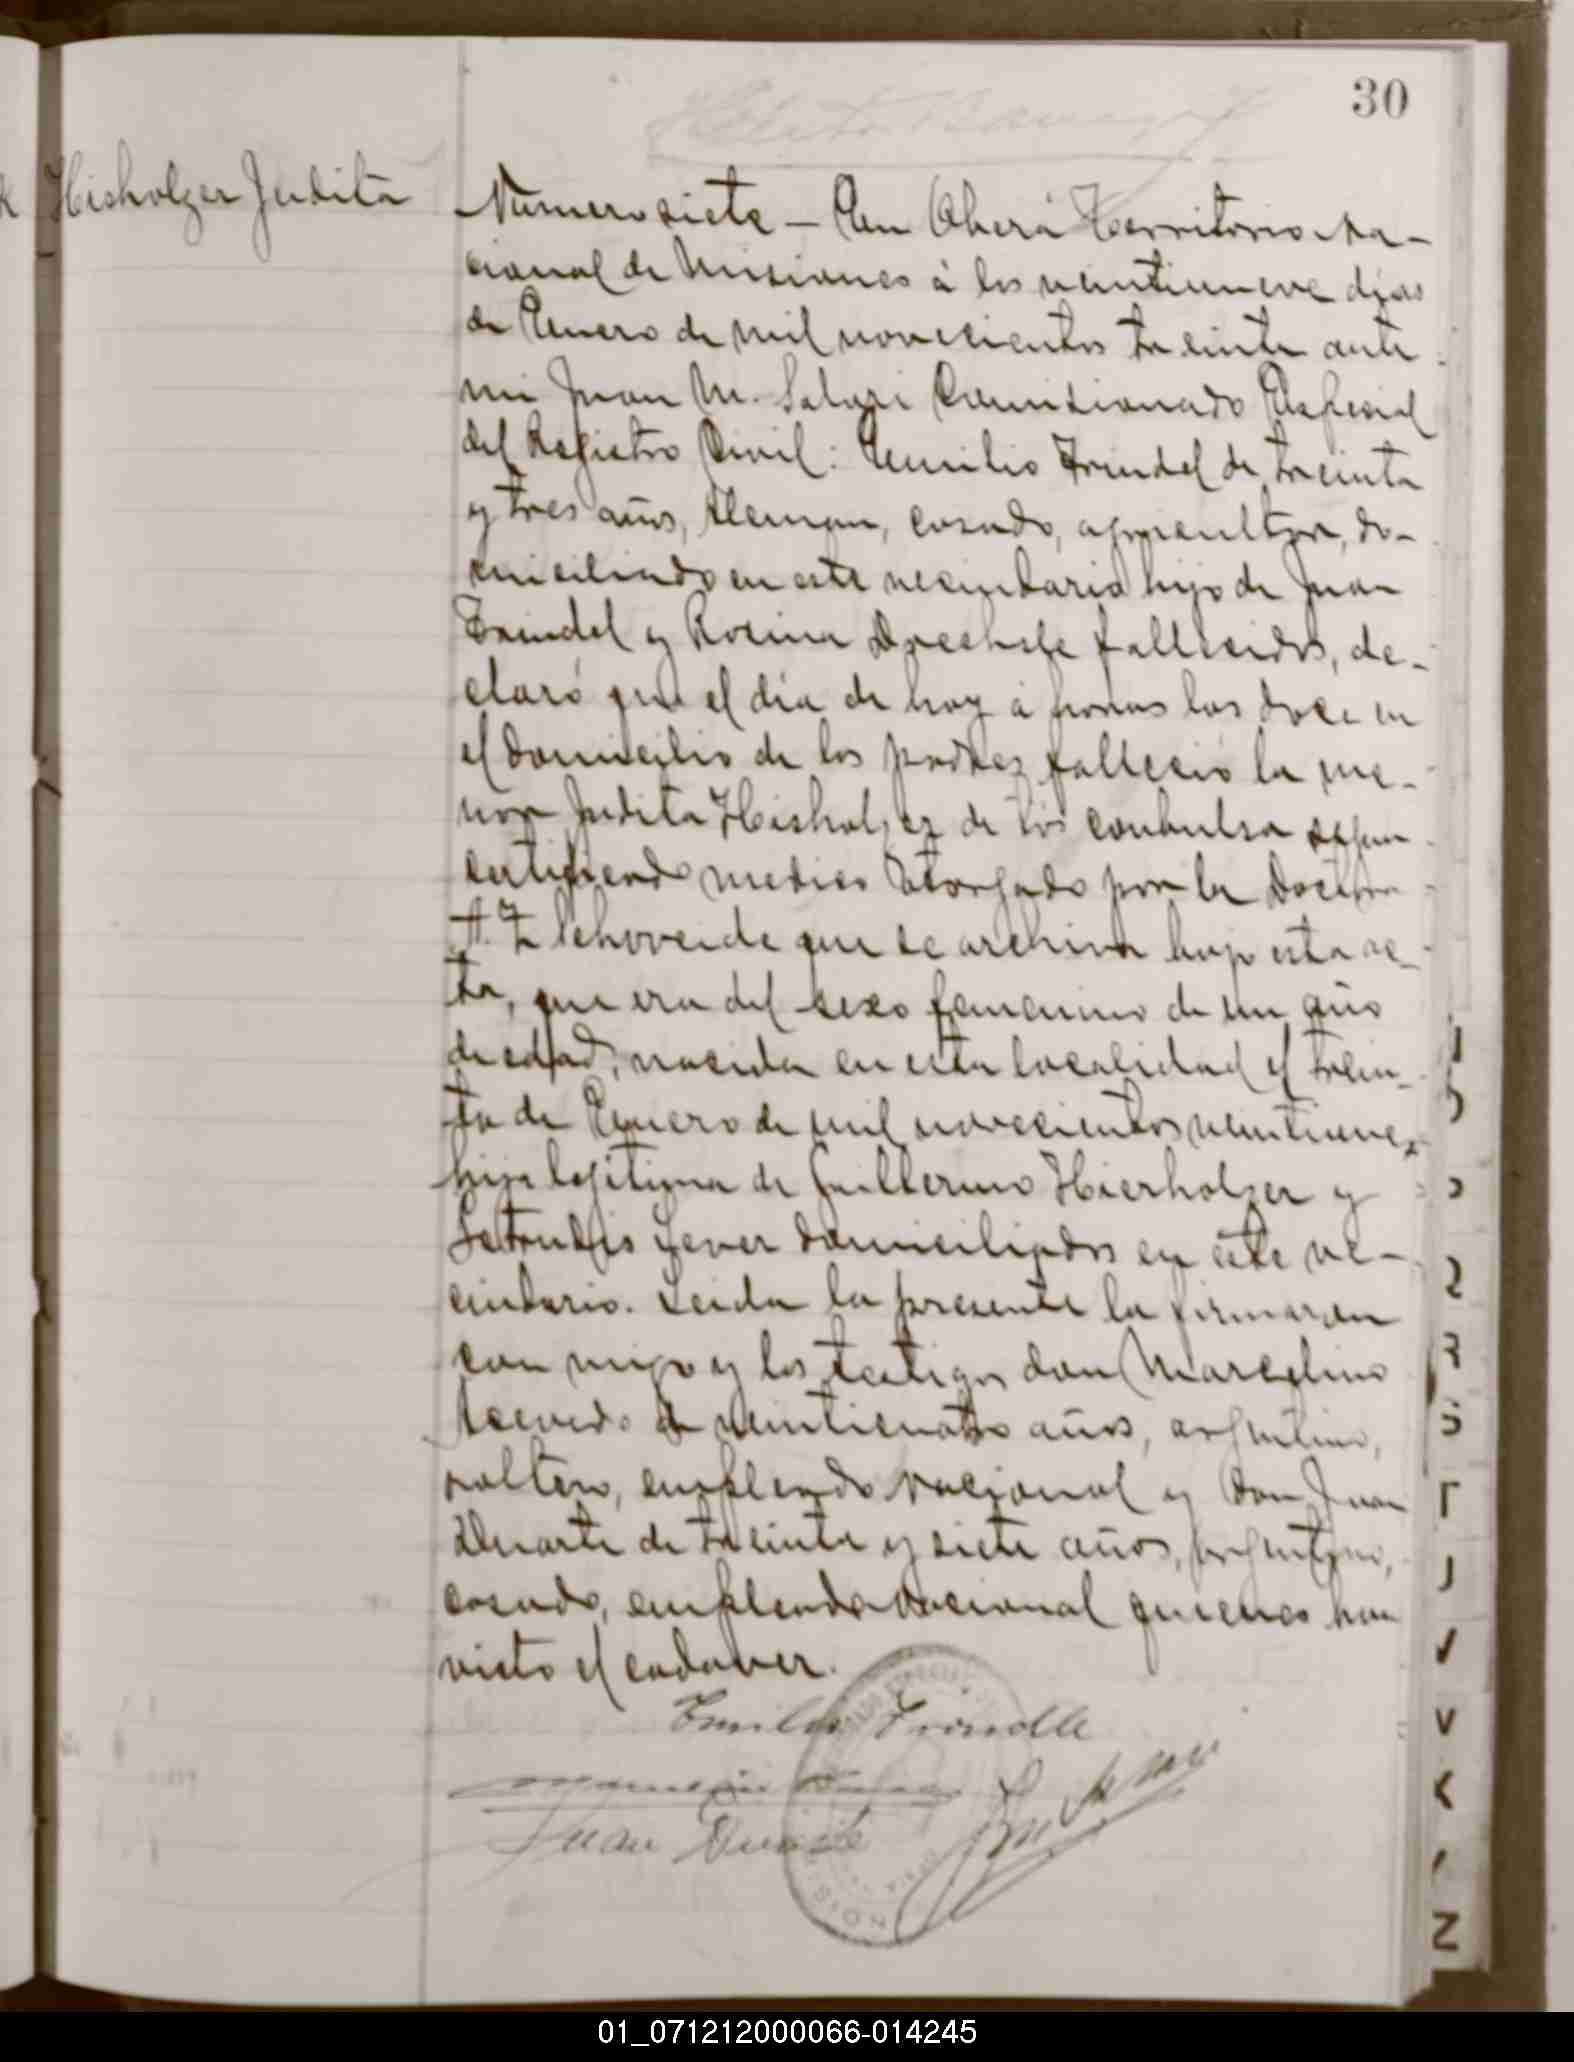 30
Hisholzer Judita
Numero siete — En Oberá Territorio Na-
cional de Misiones á los veintinueve dias
de Enero de mil novecientos treinta ante
mi Juan M. Salari Comisionado Especial
del Registro Civil: Emilio Trindel de treinta
y tres años, Aleman, casado, agricultor, do-
miciliado en este vecindario hijo de Juan
Trindel y Rosina fallecidos, de-
claró que el día de hoy á horas las doce en
el domicilio de los padres falleció la me-
nor Judita Hisholzer de tós convulsa segun
certificado medico otorgado por la Doctora
A. Z que se archiva bajo esta ac-
ta, que era del sexo femenino de un año
de edad, nacida en esta localidad el trein-
ta de Enero de mil novecientos veintinueve,
hija legitima de Guillermo Hierholzer y
Getrudis domiciliados en este ve-
cindario. Leida la presente la firmaron
con migo y los testigos don Marcelino
Acevedo de veinticuatro años, argentino,
soltero, empleado nacional y don Juan
Duarte de treinta y siete años, argentino,
casado, empleado nacional quienes han
visto el cadaver.
Emilio Trindle
Juan Duarte
01_071212000066-014245